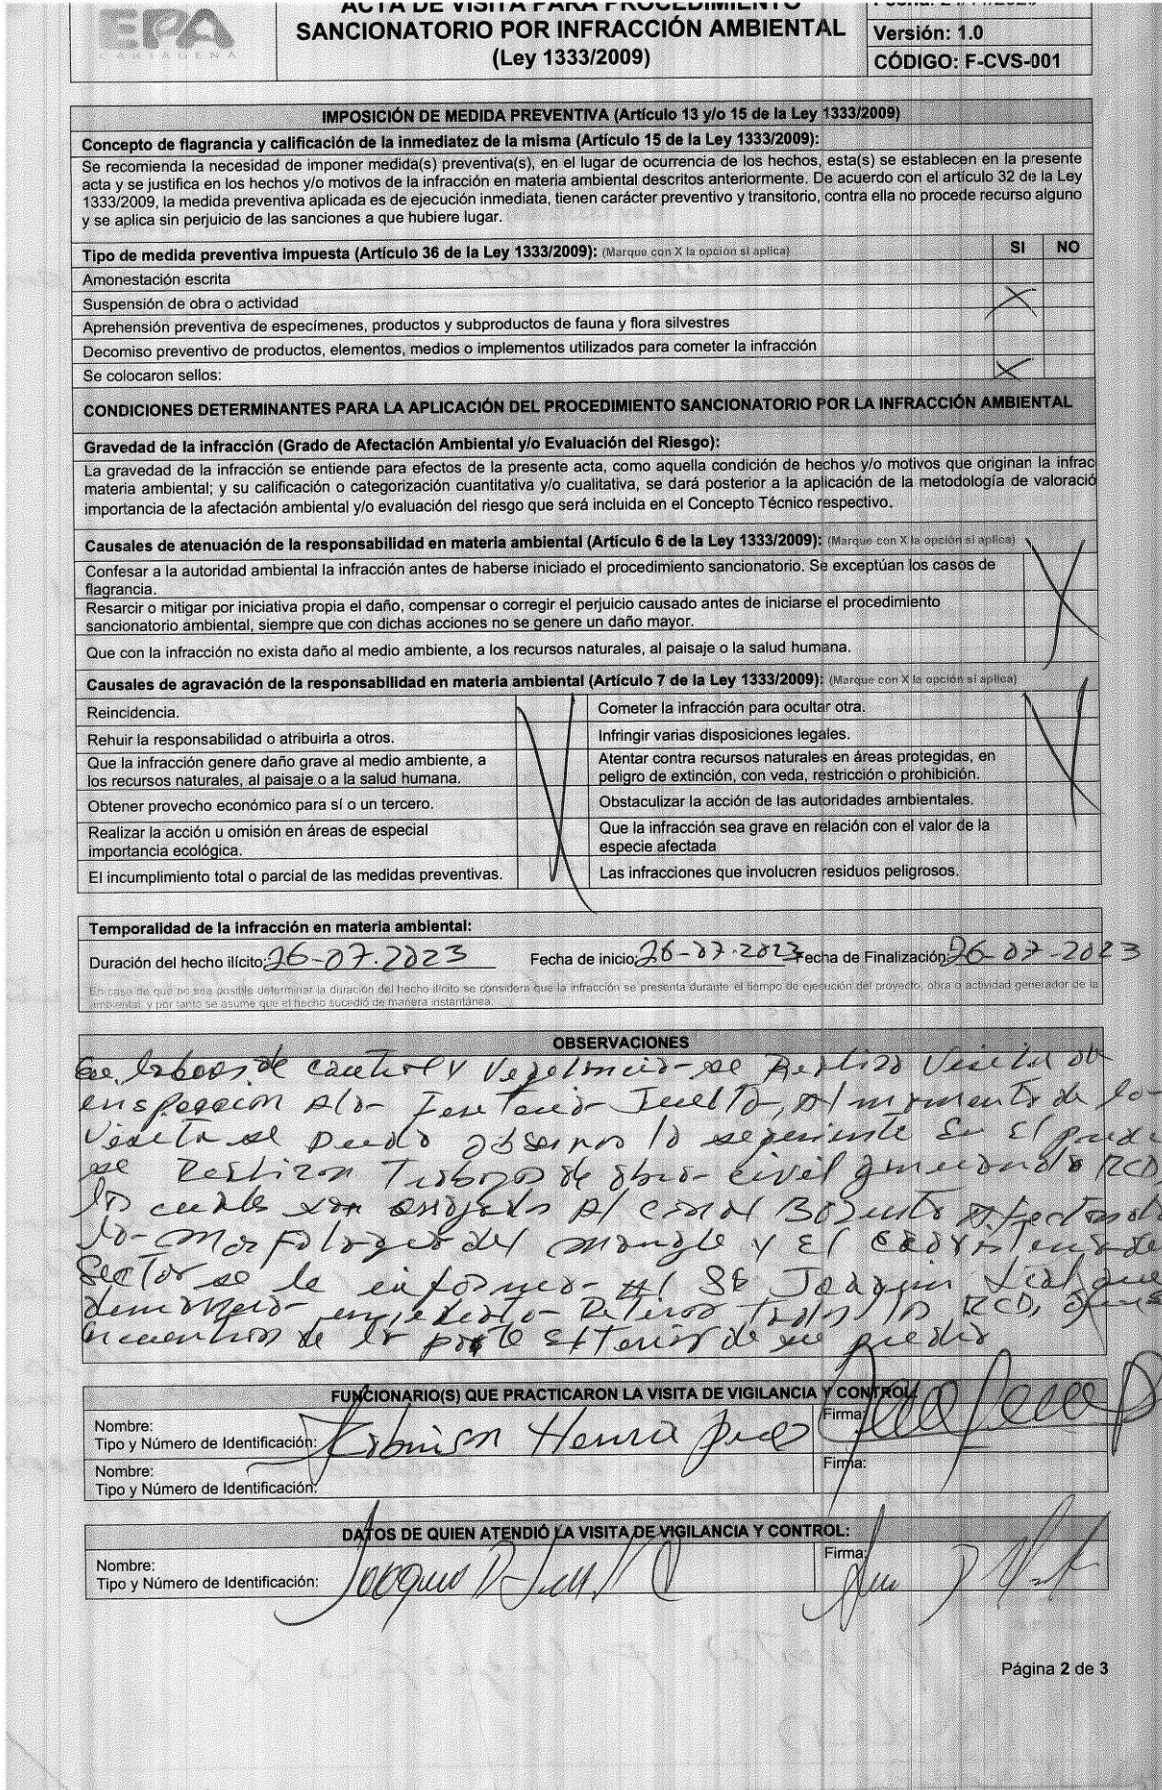 EPA
CARTAGENA
ACTA DE VISITA PARA PROCEDIMIENTO
SANCIONATORIO POR INFRACCIÓN AMBIENTAL
(Ley 1333/2009)
Versión: 1.0
CÓDIGO: F-CVS-001
IMPOSICIÓN DE MEDIDA PREVENTIVA (Artículo 13 y/o 15 de la Ley 1333/2009)
Concepto de flagrancia y calificación de la inmediatez de la misma (Artículo 15 de la Ley 1333/2009):
Se recomienda la necesidad de imponer medida(s) preventiva(s), en el lugar de ocurrencia de los hechos, esta(s) se establecen en la presente
acta y se justifica en los hechos y/o motivos de la infracción en materia ambiental descritos anteriormente. De acuerdo con el artículo 32 de la Ley
1333/2009, la medida preventiva aplicada es de ejecución inmediata, tienen carácter preventivo y transitorio, contra ella no procede recurso alguno
y se aplica sin perjuicio de las sanciones a que hubiere lugar.
Tipo de medida preventiva impuesta (Artículo 36 de la Ley 1333/2009): (Marque con X la opción si aplica) SI NO
Amonestación escrita
Suspensión de obra o actividad X
Aprehensión preventiva de especímenes, productos y subproductos de fauna y flora silvestres
Decomiso preventivo de productos, elementos, medios o implementos utilizados para cometer la infracción
Se colocaron sellos: X
CONDICIONES DETERMINANTES PARA LA APLICACIÓN DEL PROCEDIMIENTO SANCIONATORIO POR LA INFRACCIÓN AMBIENTAL
Gravedad de la infracción (Grado de Afectación Ambiental y/o Evaluación del Riesgo):
La gravedad de la infracción se entiende para efectos de la presente acta, como aquella condición de hechos y/o motivos que originan la infrac
materia ambiental; y su calificación o categorización cuantitativa y/o cualitativa, se dará posterior a la aplicación de la metodología de valoració
importancia de la afectación ambiental y/o evaluación del riesgo que será incluida en el Concepto Técnico respectivo.
Causales de atenuación de la responsabilidad en materia ambiental (Artículo 6 de la Ley 1333/2009): (Marque con X la opción si aplica)
Confesar a la autoridad ambiental la infracción antes de haberse iniciado el procedimiento sancionatorio. Se exceptúan los casos de
flagrancia.
Resarcir o mitigar por iniciativa propia el daño, compensar o corregir el perjuicio causado antes de iniciarse el procedimiento
sancionatorio ambiental, siempre que con dichas acciones no se genere un daño mayor.
Que con la infracción no exista daño al medio ambiente, a los recursos naturales, al paisaje o la salud humana.
Causales de agravación de la responsabilidad en materia ambiental (Artículo 7 de la Ley 1333/2009): (Marque con X la opción si aplica)
Reincidencia. Cometer la infracción para ocultar otra.
Rehuir la responsabilidad o atribuirla a otros. Infringir varias disposiciones legales.
Que la infracción genere daño grave al medio ambiente, a Atentar contra recursos naturales en áreas protegidas, en
los recursos naturales, al paisaje o a la salud humana. peligro de extinción, con veda, restricción o prohibición.
Obtener provecho económico para sí o un tercero. Obstaculizar la acción de las autoridades ambientales.
Realizar la acción u omisión en áreas de especial Que la infracción sea grave en relación con el valor de la
importancia ecológica. especie afectada
El incumplimiento total o parcial de las medidas preventivas. Las infracciones que involucren residuos peligrosos.
Temporalidad de la infracción en materia ambiental:
Duración del hecho ilícito: 26-07-2023 Fecha de inicio: 26-07-2023 Fecha de Finalización: 26-07-2023
En caso de que no sea posible determinar la duración del hecho ilícito se considera que la infracción se presenta durante el tiempo de ejecución del proyecto, obra o actividad generador de la
ambiental, y por tanto se asume que el hecho sucedió de manera instantánea.
OBSERVACIONES
de control y se Realizo Visita de
al momento de la
Visita se Pudo observar lo seguiente En El
se Realizan Trabajos de obra civil generando RCD,
los cuales son al
la Morfologia del mangle y El
Sector se le informo al Sr Joaquin que
todos los RCD,
de la parte Exterior de su predio
FUNCIONARIO(S) QUE PRACTICARON LA VISITA DE VIGILANCIA Y CONTROL:
Nombre: Firma:
Tipo y Número de Identificación:
Nombre: Firma:
Tipo y Número de Identificación:
DATOS DE QUIEN ATENDIÓ LA VISITA DE VIGILANCIA Y CONTROL:
Nombre: Firma:
Tipo y Número de Identificación:
Página 2 de 3